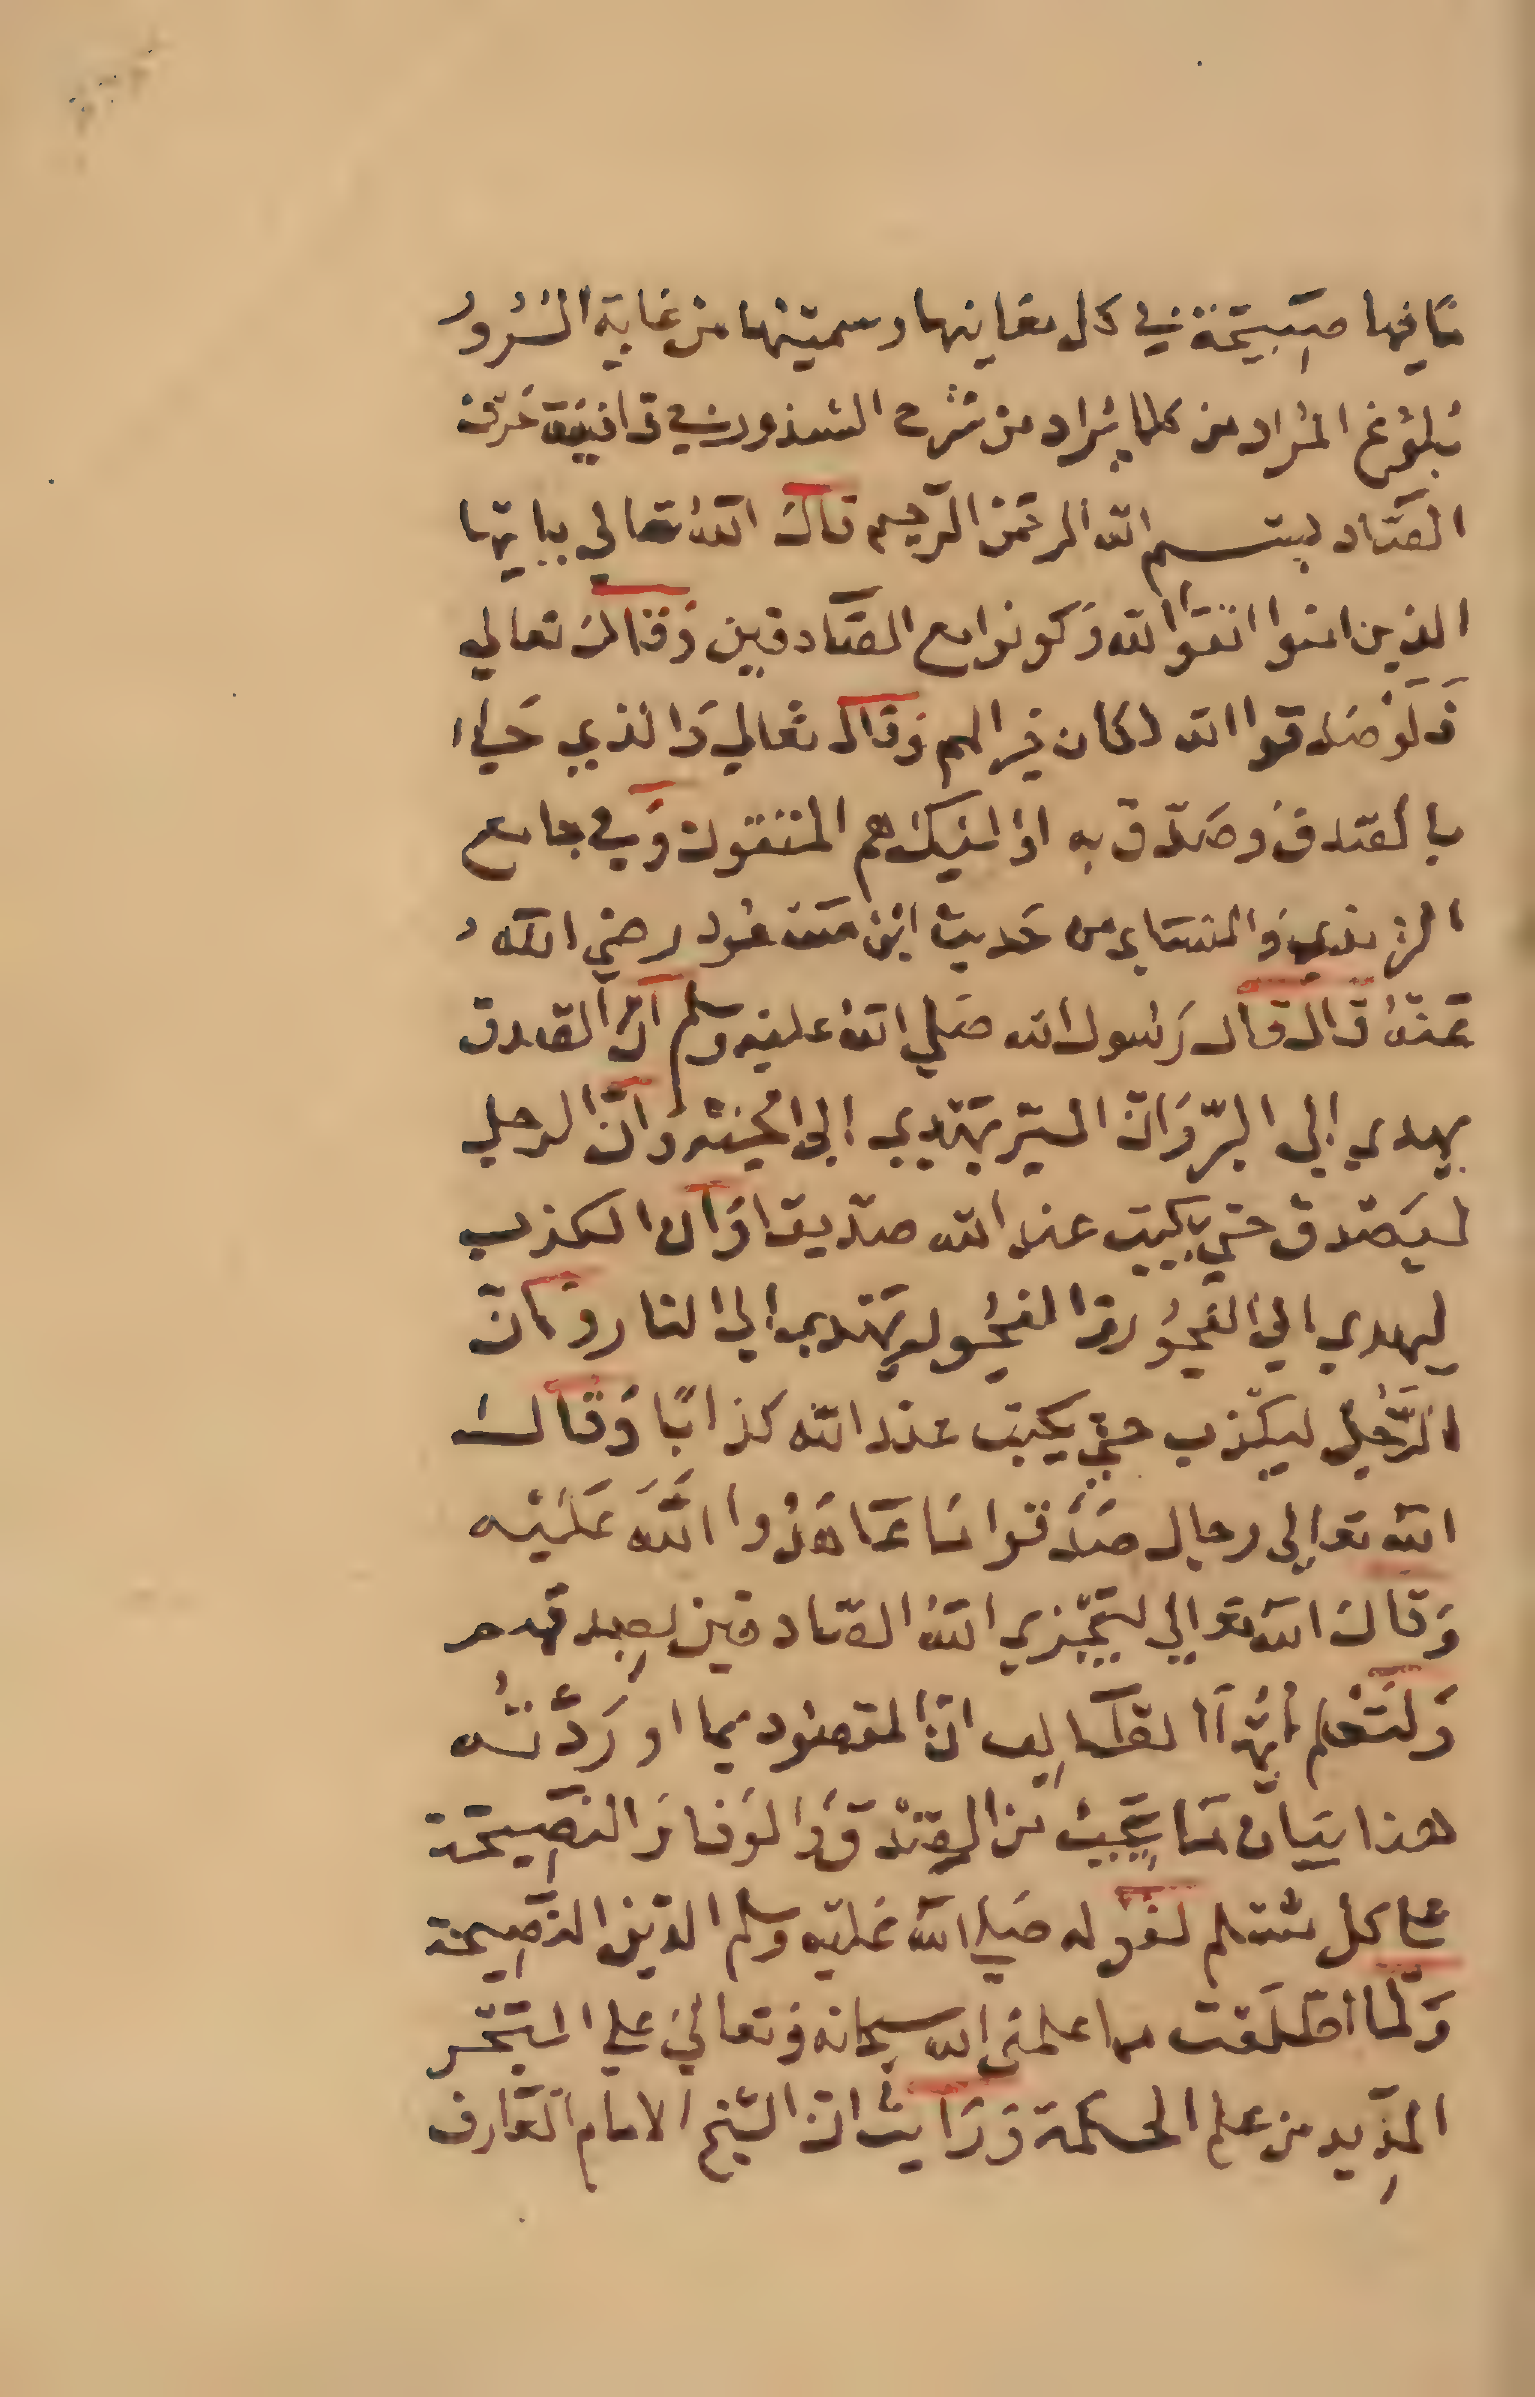 مافيها صبيحة في كل معانيها وسميتها من غاية السرور
بلوغ المراد من كلما يراد من شرح الشذور في قافية حرف
الصاد بسم الله الرحمن الرحيم قال الله تعالى ياايها
الذين امنوا اتقوا الله وكونوا مع الصادقين وقال تعالى
فلو صدقوا الله لكان خيرا لهم وقال تعالي والذي جاء
بالصدق وصدق به اوليك هم المتقون وفي جامع
الترمذي والنساي من حديث ابن مسعود رضي الله
عنه قال قال رسول الله صلي الله عليه وسلم ان الصدق
يهدي الى البر وان البر يهدي الى الجنه وان الرجل
ليصدق حتي يكتب عند الله صديقا وان الكذب
ليهدي الي الفجور والفجور يهدي الي النار وان
الرجل ليكذب حتي يكتب عند الله كذابا وقال
الله تعالى رجال صدقوا ما عاهدوا الله عليه
وقال الله تعالى ليجزي الله الصادقين بصدقهم
ولتعلم ايها الطالب ان المقصود بما اوردته
هذا بيان ما يجب من الصدق والوفا والنصيحة
على كل مسلم لقوله صلي الله عليه وسلم الدين النصيحة
ولما اطلعت مما علمني الله سبحانه وتعالي علي التبحر
المزيد من علم الحكمة ورايت ان الشيخ الامام العارف